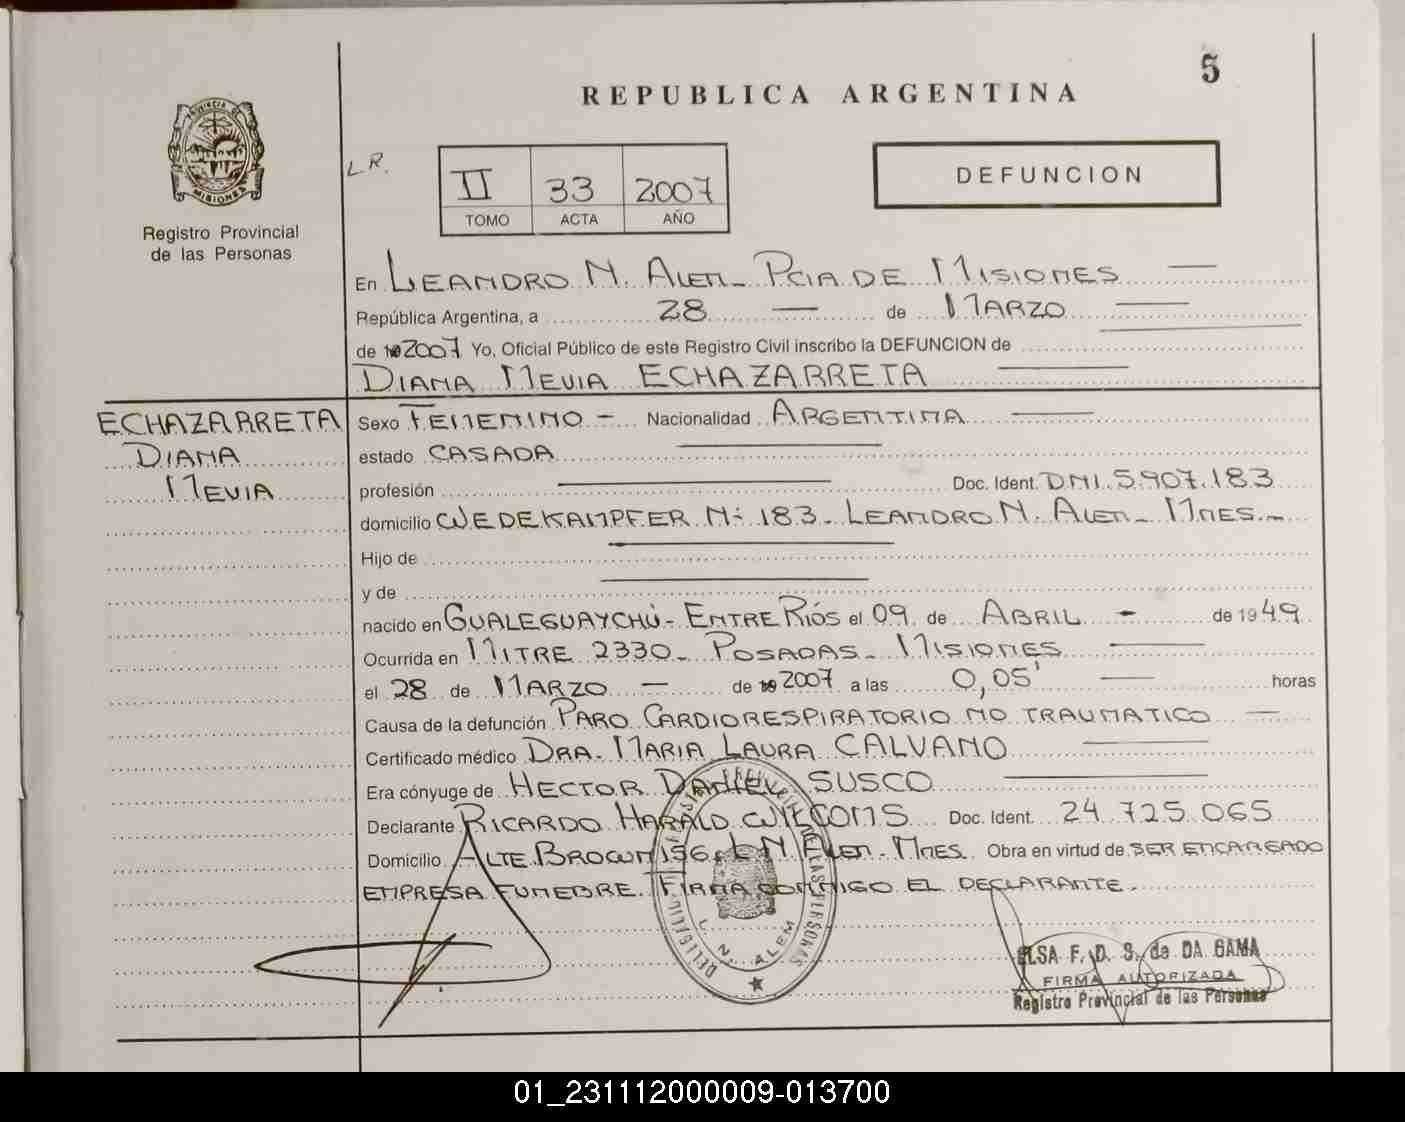 5
REPUBLICA ARGENTINA
PROVINCIA DE
MISIONES
Registro Provincial
de las Personas
L.R.
II 33 2007
TOMO ACTA AÑO
DEFUNCION
En LEANDRO N. ALEM - PCIA DE MISIONES
República Argentina, a 28 de MARZO
de 2007 Yo, Oficial Público de este Registro Civil inscribo la DEFUNCION de
DIANA MEVIA ECHAZARRETA
ECHAZARRETA
DIANA
MEVIA
Sexo FEMENINO - Nacionalidad ARGENTINA
estado CASADA
profesión Doc. Ident. DNI. 5.907.183
domicilio WEDEKAMPFER Nº 183 - LEANDRO N. ALEM - MNES.-
Hijo de
y de
nacido en GUALEGUAYCHÚ - ENTRE RÍOS el 09 de ABRIL - de 1949
Ocurrida en MITRE 2330 - POSADAS - MISIONES
el 28 de MARZO - de 2007 a las 0,05' horas
Causa de la defunción PARO CARDIORESPIRATORIO NO TRAUMATICO
Certificado médico DRA. MARIA LAURA CALVANO
Era cónyuge de HECTOR DANIEL SUSCO
Declarante RICARDO HARALD Doc. Ident. 24.725.065
Domicilio ALTE BROWN 156 - L N ALEM - MNES. Obra en virtud de SER ENCARGADO
EMPRESA FUNEBRE. FIRMA CONMIGO EL DECLARANTE.
L. N. ALEM
ELSA F. D. S. de DA GAMA
FIRMA AUTORIZADA
Registro Provincial de las Personas
01_231112000009-013700